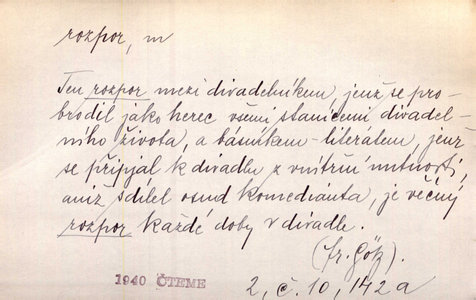 rozpor, m
Ten rozpor mezi divadelníkem, jenž se pro-
brodil jako herec všemi stanicemi divadel-
ního života, a básníkem-literátem, jenž
se připjal k divadlu z vnitřní nutnosti,
aniž sdílel osud komedianta, je věčný
rozpor každé doby v divadle.
(Fr. Götz).
1940 ČTEME 2, č. 10, 142a